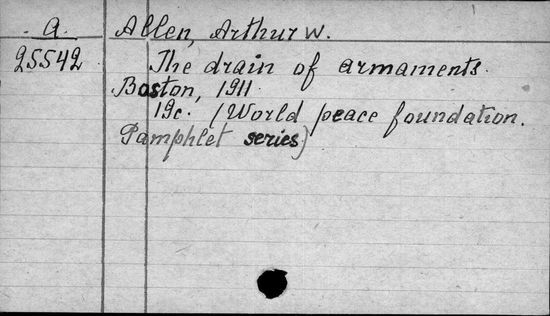 A. Allen, Arthur W.
25542 The drain of armaments.
Boston, 1911.
19c. (World peace foundation.
Pamphlet series)